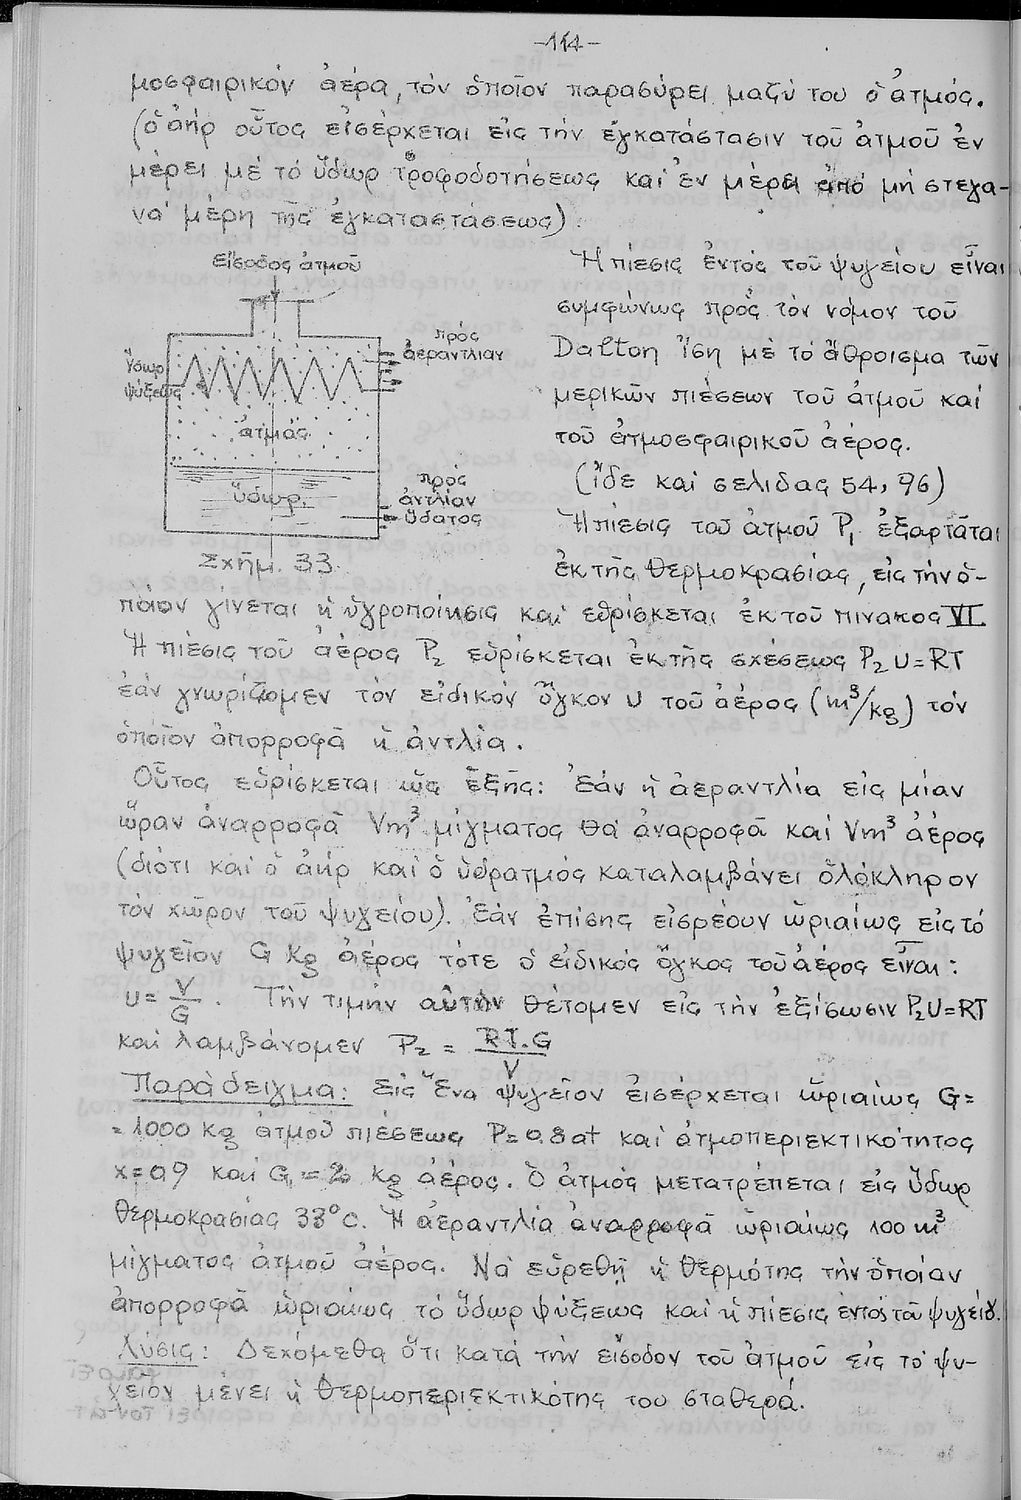 -114-
μοσφαιρικόν ἀέρα, τόν ὁποῖον παρασύρει μαζύ του ὁ ἀτμός.
(ὁ ἀήρ οὗτος εἰσέρχεται εἰς τήν ἐγκατάστασιν τοῦ ἀτμοῦ ἐν
μέρει μέ τό ὕδωρ τροφοδοτήσεως καί ἐν μέρει ἀπό μή στεγα-
νά μέρη τῆς ἐγκαταστάσεως).
Εἴσοδος ἀτμοῦ
πρός
ἀεραντλίαν
ὕδωρ
ψύξεως
ἀτμός
ὕδωρ.
πρός
ἀντλίαν
ὕδατος
Σχῆμ. 33
Ἡ πίεσις ἐντός τοῦ ψυγείου εἶναι
συμφώνως πρός τόν νόμον τοῦ
Dalton ἴση μέ τό ἄθροισμα τῶν
μερικῶν πιέσεων τοῦ ἀτμοῦ καί
τοῦ ἀτμοσφαιρικοῦ ἀέρος.
(ἴδε καί σελίδας 54, 96)
Ἡ πίεσις τοῦ ἀτμοῦ P₁ ἐξαρτᾶται
ἐκ της θερμοκρασίας, εἰς τήν ὁ-
ποίαν γίνεται ἡ ὑγροποίησις καί εὑρίσκεται ἐκ τοῦ πίνακος VI
Ἡ πίεσις τοῦ ἀέρος P₂ εὑρίσκεται ἐκ τῆς σχέσεως P₂ υ = RT
ἐάν γνωρίζομεν τόν εἰδικόν ὄγκον υ τοῦ ἀέρος (m³/kg) τόν
ὁποῖον ἀπορροφᾶ ἡ ἀντλία.
Οὗτος εὑρίσκεται ὡς ἑξῆς: Ἐάν ἡ ἀεραντλία εἰς μίαν
ὥραν ἀναρροφᾶ Vm³ μίγματος θά ἀναρροφᾶ καί Vm³ ἀέρος
(διότι καί ὁ ἀήρ καί ὁ ὑδρατμός καταλαμβάνει ὁλόκληρον
τόν χῶρον τοῦ ψυγείου). Ἐάν ἐπίσης εἰσρέουν ὡριαίως εἰς τό
ψυγεῖον G Kg ἀέρος τότε ὁ εἰδικός ὄγκος τοῦ ἀέρος εἶναι:
υ = V/G. Τήν τιμήν αὐτήν θέτομεν εἰς τήν ἐξίσωσιν P₂υ = RT
καί λαμβάνομεν P₂ = RT.G/V
Παράδειγμα: εἰς ἕνα ψυγεῖον εἰσέρχεται ὡριαίως G=
= 1000 kg ἀτμοῦ πιέσεως P=0.8 at καί ἀτμοπεριεκτικότητος
x=0,9 καί G₁ = kg ἀέρος. Ὁ ἀτμός μετατρέπεται εἰς ὕδωρ
θερμοκρασίας 33°C. Ἡ ἀεραντλία ἀναρροφᾶ ὡριαίως 100 m³
μίγματος ἀτμοῦ ἀέρος. Νά εὑρεθῇ ἡ θερμότης τήν ὁποίαν
ἀπορροφᾶ ὡριαίως τό ὕδωρ ψύξεως καί ἡ πίεσις ἐντός τοῦ ψυγείου.
Λύσις: Δεχόμεθα ὅτι κατά τήν εἴσοδον τοῦ ἀτμοῦ εἰς τό ψυ-
γεῖον μένει ἡ θερμοπεριεκτικότης του σταθερά.